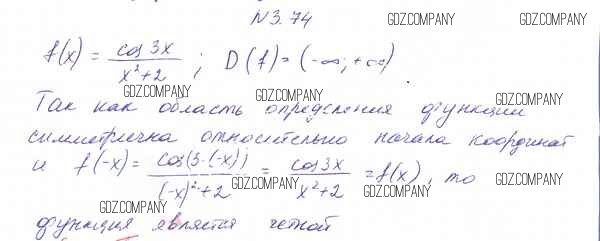 №3.74 GDZ.COMPANY GDZ.COMPANY
f(x) = cos 3x / x²+2 ; D(f) = (-∞; +∞)
GDZ.COMPANY GDZ.COMPANY GDZ.COMPANY
Так как область определения функции
симметрична относительно начала координат
GDZ.COMPANY GDZ.COMPANY
и f(-x) = cos(3·(-x)) / (-x)²+2 = cos 3x / x²+2 = f(x), то
GDZ.COMPANY GDZ.COMPANY GDZ.COMPANY
функция является четной
GDZ.COMPANY